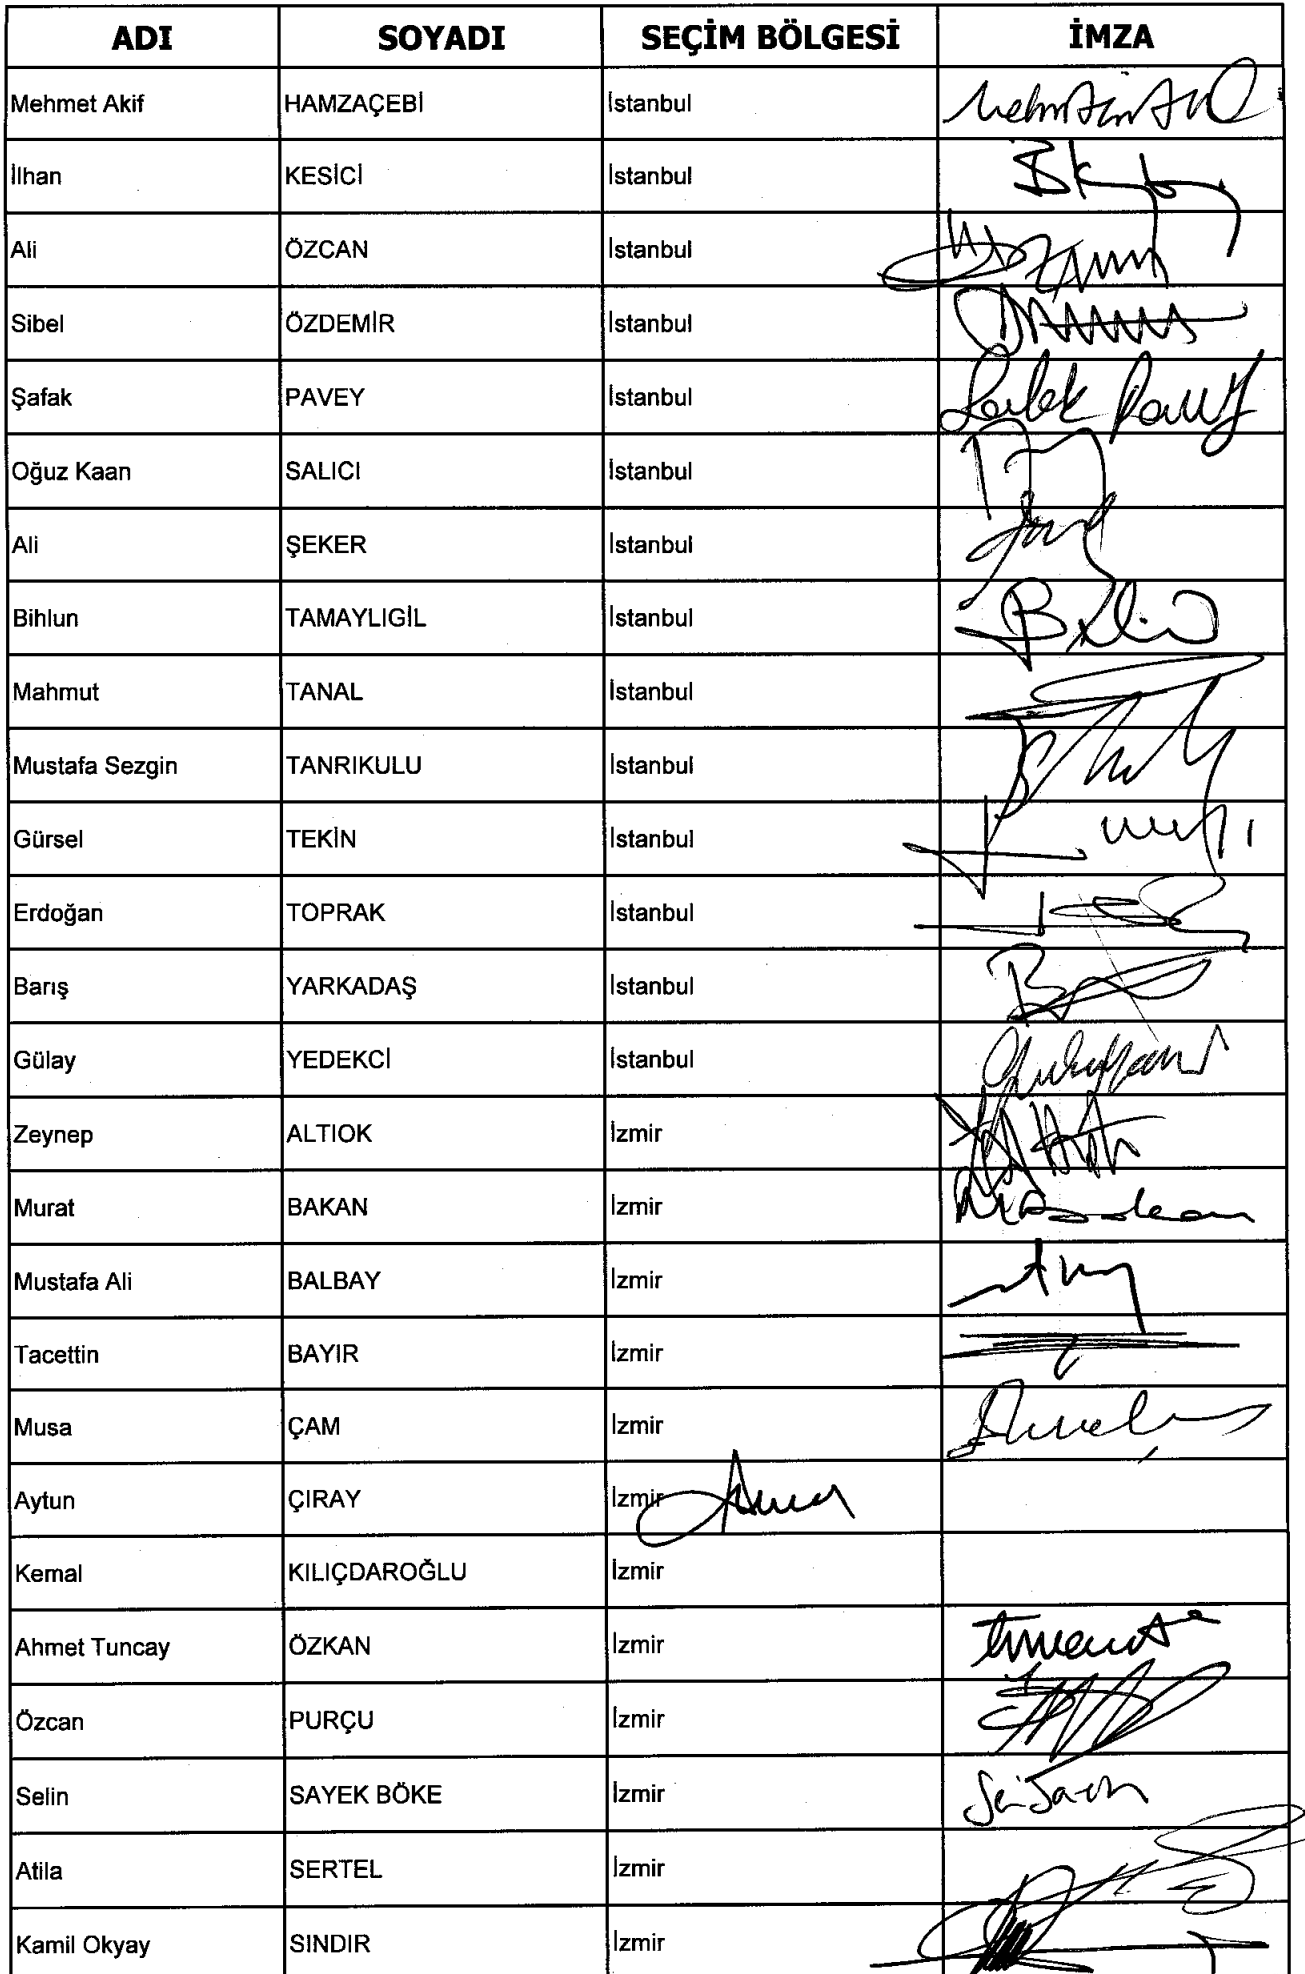 ADI SOYADI SEÇİM BÖLGESİ İMZA
Mehmet Akif HAMZAÇEBİ İstanbul
İlhan KESİCİ İstanbul
Ali ÖZCAN İstanbul
Sibel ÖZDEMİR İstanbul
Şafak PAVEY İstanbul
Oğuz Kaan SALICI İstanbul
Ali ŞEKER İstanbul
Bihlun TAMAYLIGİL İstanbul
Mahmut TANAL İstanbul
Mustafa Sezgin TANRIKULU İstanbul
Gürsel TEKİN İstanbul
Erdoğan TOPRAK İstanbul
Barış YARKADAŞ İstanbul
Gülay YEDEKCİ İstanbul
Zeynep ALTIOK İzmir
Murat BAKAN İzmir
Mustafa Ali BALBAY İzmir
Tacettin BAYIR İzmir
Musa ÇAM İzmir
Aytun ÇIRAY İzmir
Kemal KILIÇDAROĞLU İzmir
Ahmet Tuncay ÖZKAN İzmir
Özcan PURÇU İzmir
Selin SAYEK BÖKE İzmir
Atila SERTEL İzmir
Kamil Okyay SINDIR İzmir